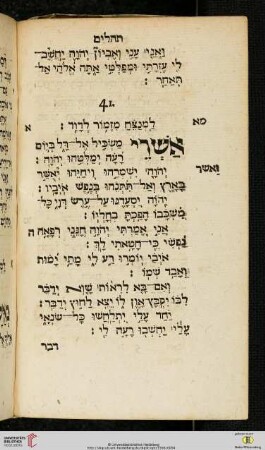 תהלים
וַאֲנִי עָנִי וְאֶבְיוֹן יְהוָה יַחֲשָׁב־
לִי עֶזְרָתִי וּמְפַלְטִי אָתָּה אֱלֹהַי אַל־
תְּאַחַר׃
41.
מא
לַמְנַצֵּחַ מִזְמוֹר לְדָוִד׃
א
אַשְׁרֵי מַשְׂכִּיל אֶל־דָּל בְּיוֹם
רָעָה יְמַלְּטֵהוּ יְהוָה׃
יְהוָה יִשְׁמְרֵהוּ וִיחַיֵּהוּ יְאֻשַּׁר
ואשר
בָּאָרֶץ וְאַל־תִּתְּנֵהוּ בְּנֶפֶשׁ אֹיְבָיו׃
יְהוָה יִסְעָדֶנּוּ עַל־עֶרֶשׂ דְּוָי כָּל־
מִשְׁכָּבוֹ הָפַכְתָּ בְחָלְיוֹ׃
אֲנִי אָמַרְתִּי יְהוָה חָנֵּנִי רְפָאָה
ה
נַפְשִׁי כִּי־חָטָאתִי לָךְ׃
אוֹיְבַי יֹאמְרוּ רַע לִי מָתַי יָמוּת
וְאָבַד שְׁמוֹ׃
וְאִם־בָּא לִרְאוֹת שָׁוְא יְדַבֵּר
לִבּוֹ יִקְבָּץ־אָוֶן לוֹ יֵצֵא לַחוּץ יְדַבֵּר׃
יַחַד עָלַי יִתְלַחֲשׁוּ כָּל־שֹׂנְאָי
עָלַי יַחְשְׁבוּ רָעָה לִי׃
דבר
UNIVERSITÄTS-
BIBLIOTHEK
HEIDELBERG
© Universitätsbibliothek Heidelberg